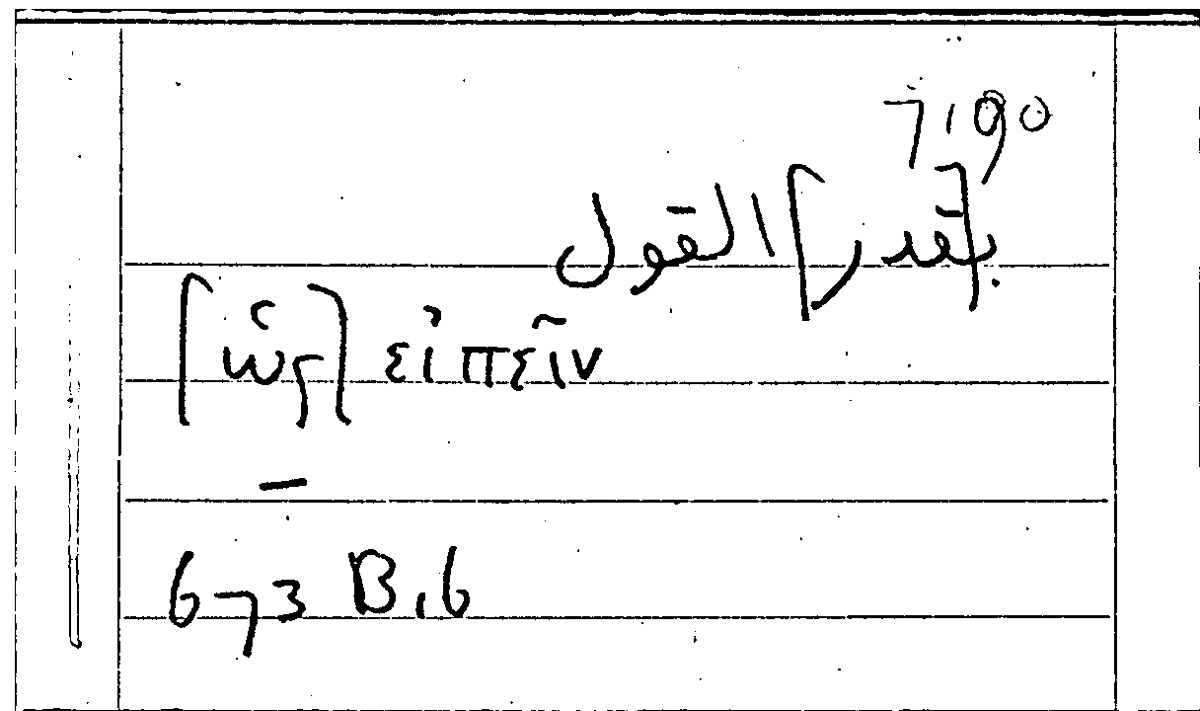 7190
[بقدر] القول
[ὡς] εἰπεῖν
—
673 B, 6